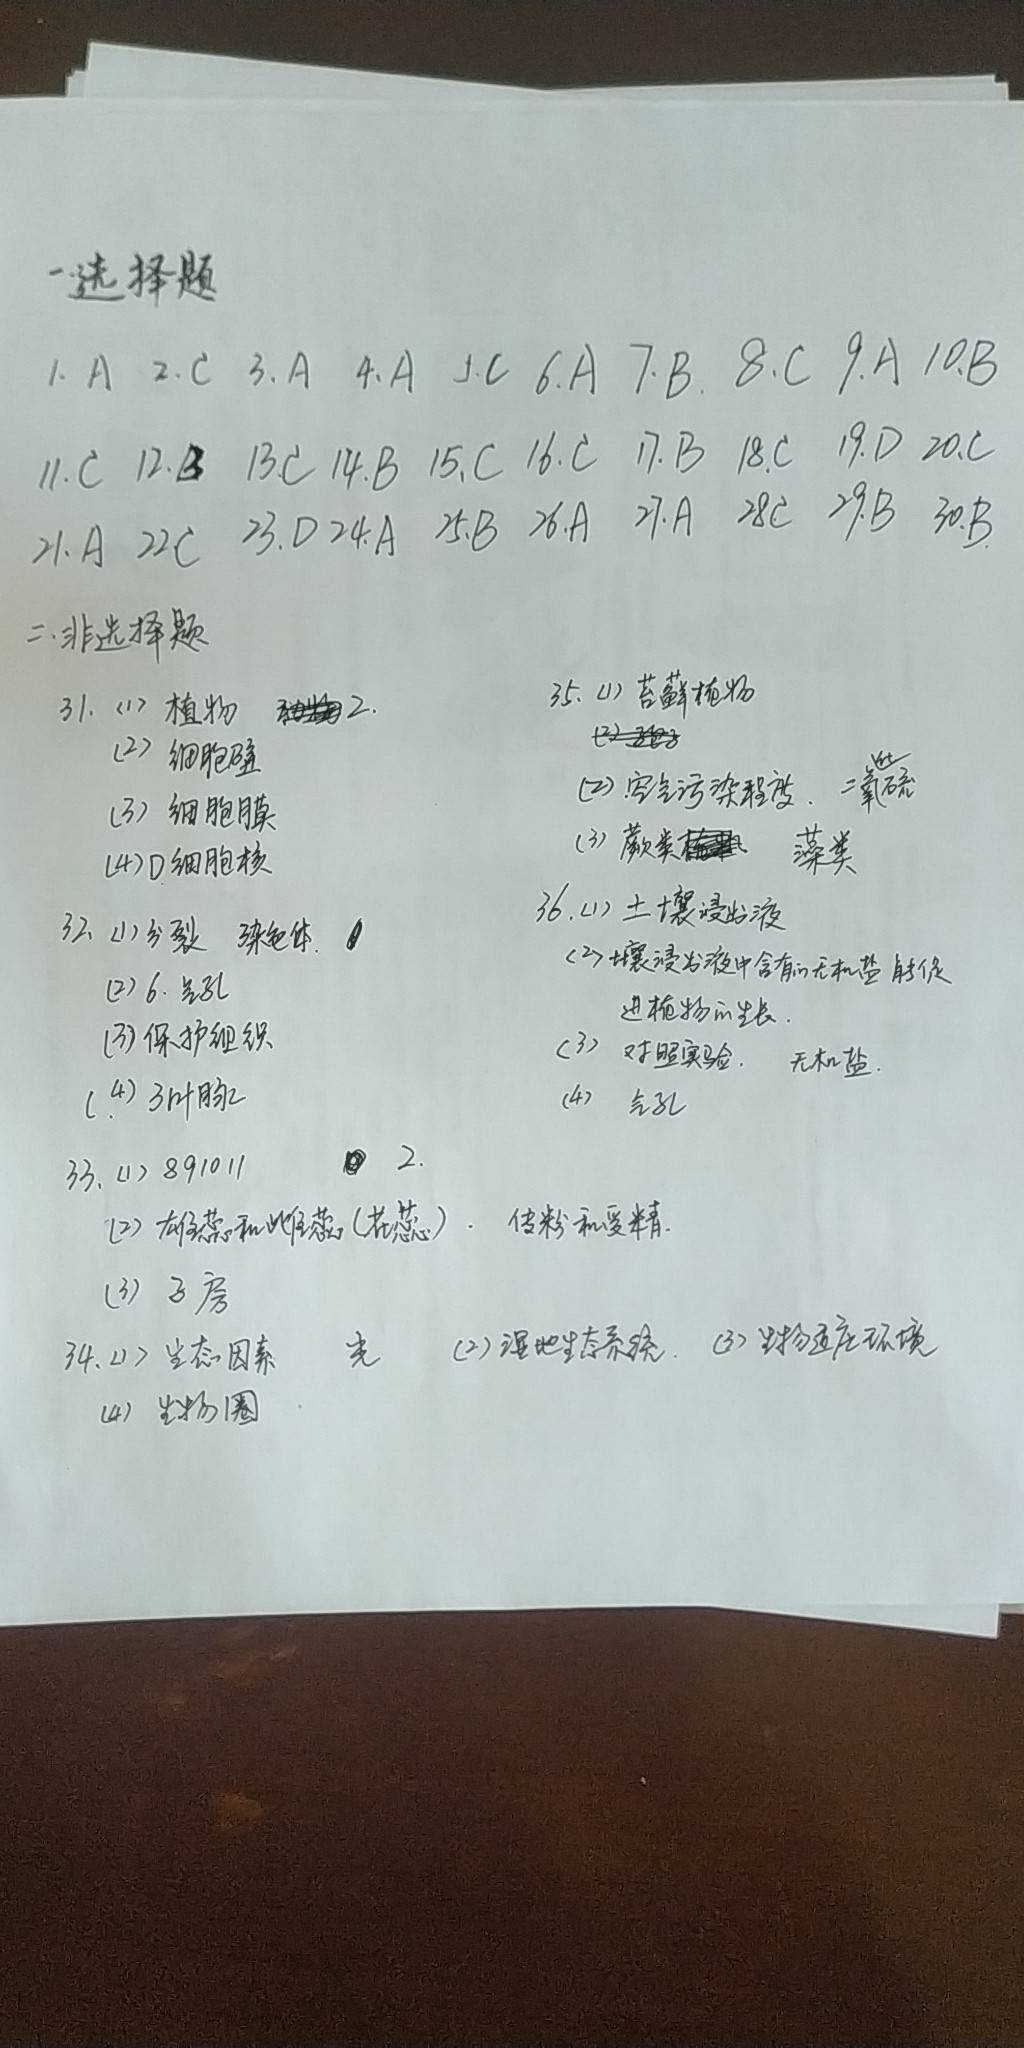 一.选择题
1. A 2. C 3. A 4. A 5. C 6. A 7. B. 8. C 9. A 10. B
11. C 12. B 13. C 14. B 15. C 16. C 17. B 18. C 19. D 20. C
21. A 22 C 23. D 24. A 25. B 26. A 27. A 28 C 29. B 30. B.
二.非选择题
31. (1) 植物 2.
(2) 细胞壁
(3) 细胞膜
(4) D 细胞核
32. (1) 分裂 染色体.
(2) 6. 气孔
(3) 保护组织
(4) 3 叶脉
33. (1) 8 9 10 11 2.
(2) 雄蕊和雌蕊 (花蕊). 传粉和受精.
(3) 子房
34. (1) 生态因素 光 (2) 湿地生态系统. (3) 生物适应环境
(4) 生物圈
35. (1) 苔藓植物
(2) 空气污染程度. 二氧化硫
(3) 蕨类 藻类
36. (1) 土壤浸出液
(2) 土壤浸出液中含有的无机盐 能促
进植物的生长.
(3) 对照实验. 无机盐.
(4) 气孔